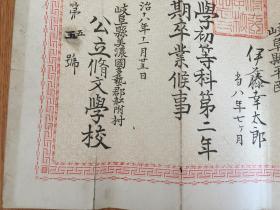 岐阜縣平民
伊藤幸太郎
八年七ヶ月
學初等科第二年
期卒業候事
治十八年二月廿五日
岐阜縣美濃國多藝郡飯附村
公立脩文學校
第五五號